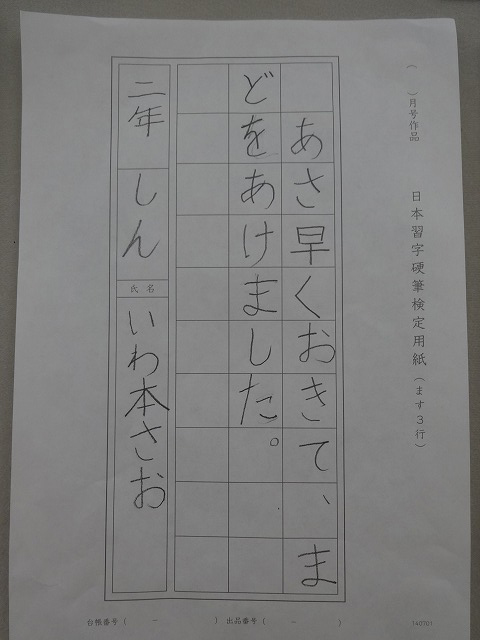 （　　）月号作品
日本習字硬筆検定用紙（ます３行）
あさ早くおきて、ま
どをあけました。
二年 しん
氏名
いわ本さお
台帳番号（　　－　　　）　出品番号（　　－　　　）
140701